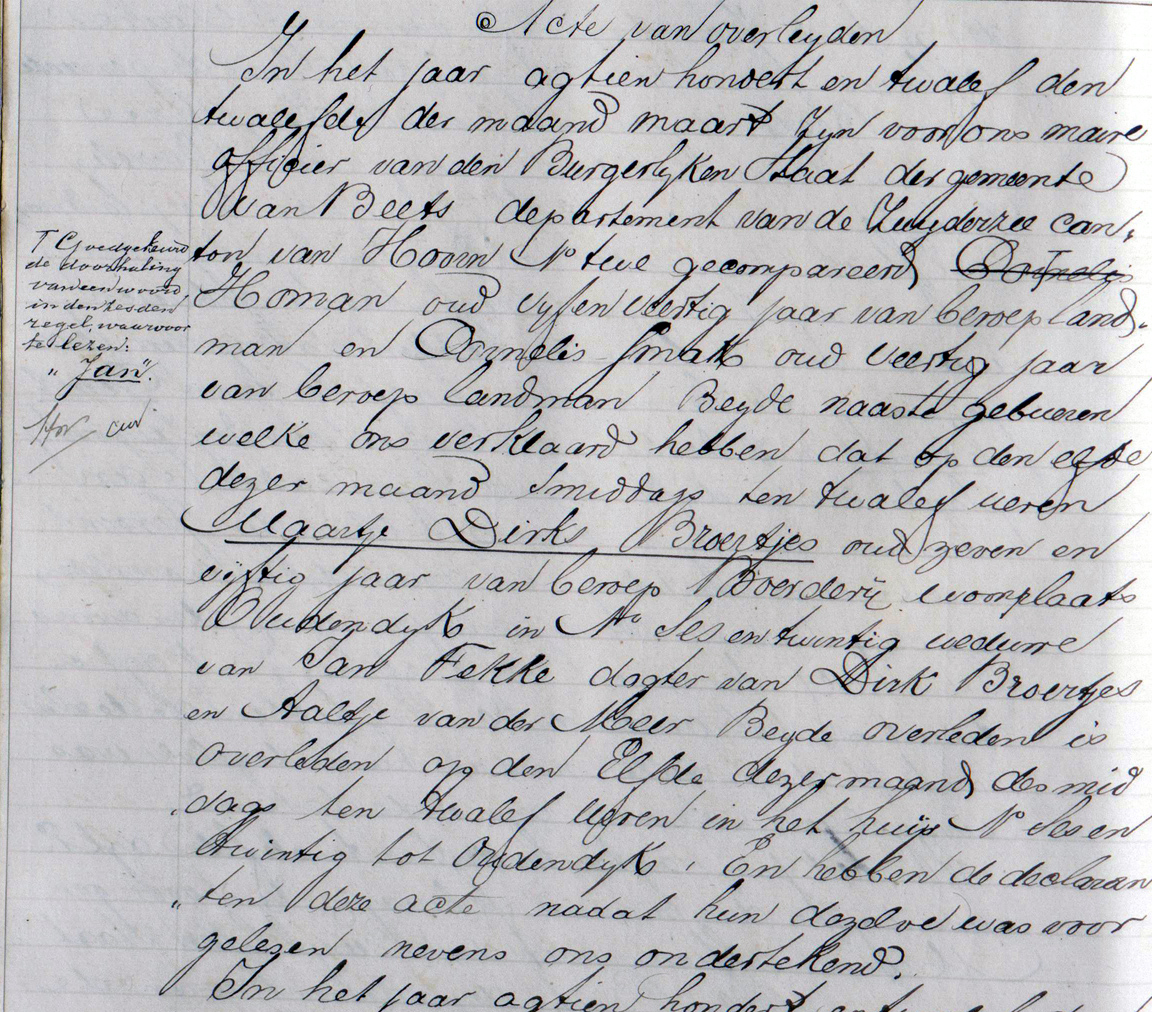 Acte van overleyden
In het jaar agtien hondert en twalef den
twalefde der maand maart Zyn voor ons maire
officier van den Burgerlyken Staat der gemeente
van Beets departement van de Zuyderzee can„
ton van Hoorn N° twe gecompareerd Cornelis
Homan oud vyf en veertig jaar van beroep land„
man en Cornelis Smak oud veertig jaar
van beroep landman Beyde naaste gebueren
welke ons verklaard hebben dat op den elfde
dezer maand Smiddags ten twalef ueren
Maartje Dirks Broertjes oud zeven en
vijftig jaar van beroep Boerderij woonplaats
Oudendyk in N° Ses en twintig weduwe
van Jan Fekke dogter van Dirk Broertjes
en Aaltje van der Meer Beyde overleden is
overleden op den Elfde dezer maand des mid
„dags ten twalef Ueren in het huijs N° Ses en
twintig tot Oudendyk. En hebben de declaran
„ten deze acte nadat hun dezelve was voor
gelezen nevens ons ondertekend.
In het jaar agtien hondert
T Goedgekeurd
de doorhaling
van een woord,
in den zesden
regel, waarvoor
te lezen:
„Jan".